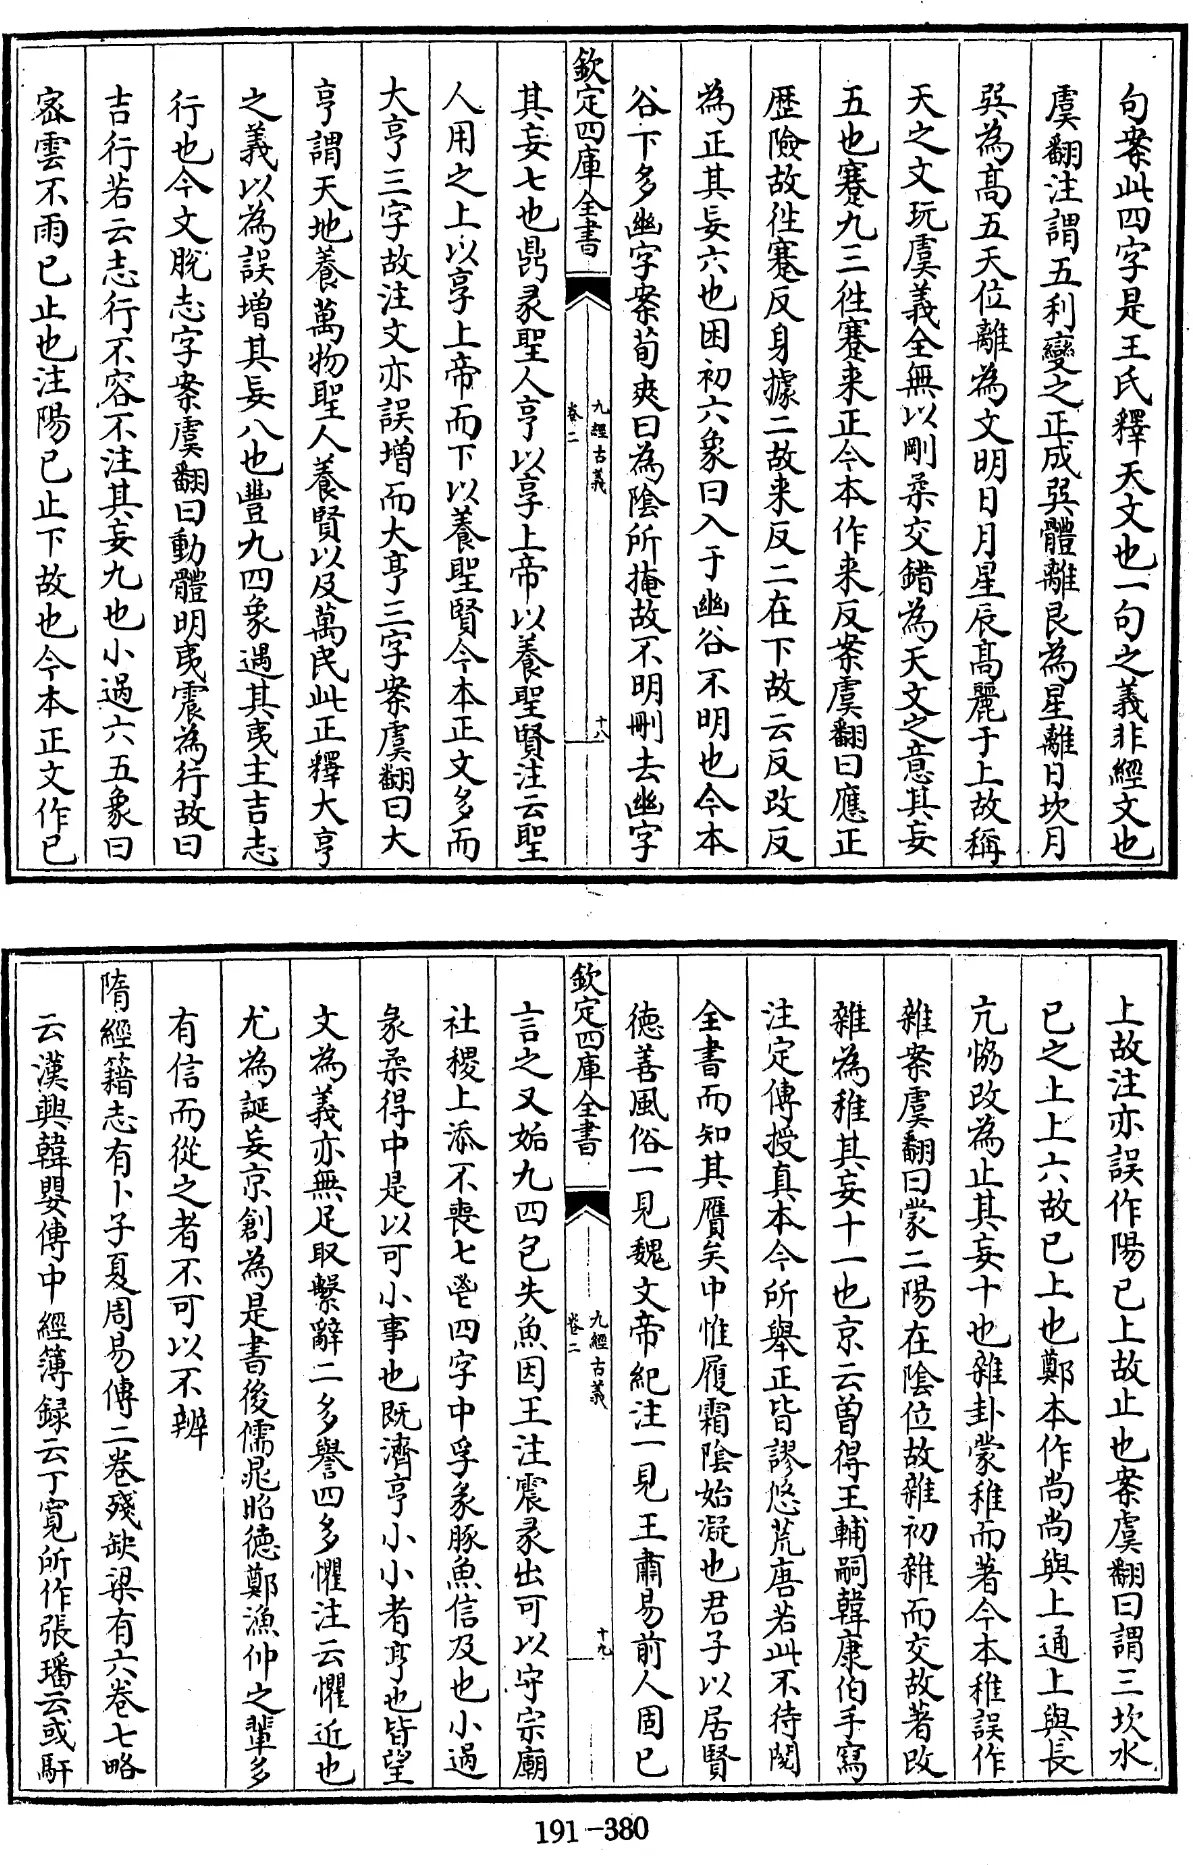 句案此四字是王氏釋天文也一句之義非經文也
虞翻注謂五利變之正成巽體離艮為星離日坎月
巽為高五天位離為文明日月星辰高麗于上故稱
天之文玩虞義全無以剛柔交錯為天文之意其妄
五也蹇九三往蹇來正今本作來反案虞翻曰應正
歷險故往蹇反身據二故來反二在下故云反改反
為正其妄六也困初六象曰入于幽谷不明也今本
谷下多幽字案荀爽曰為陰所掩故不明刪去幽字
欽定四庫全書
九經古義
卷二
十八
其妄七也鼎彖聖人亨以享上帝以養聖賢注云聖
人用之上以享上帝而下以養聖賢今本正文多而
大亨三字故注文亦誤增而大亨三字案虞翻曰大
亨謂天地養萬物聖人養賢以及萬民此正釋大亨
之義以為誤增其妄八也豐九四象遇其夷主吉志
行也今文脫志字案虞翻曰動體明夷震為行故曰
吉行若云志行不容不注其妄九也小過六五象曰
密雲不雨已止也注陽已止下故也今本正文作已
上故注亦誤作陽已上故止也案虞翻曰謂三坎水
已之上上六故已上也鄭本作尚尚與上通上與長
亢恊改為止其妄十也雜卦蒙稚而著今本稚誤作
雜案虞翻曰蒙二陽在陰位故雜初雜而交故著改
雜為稚其妄十一也京云曾得王輔嗣韓康伯手寫
注定傳授真本今所舉正皆謬悠荒唐若此不待閱
全書而知其贋矣中惟履霜陰始凝也君子以居賢
德善風俗一見魏文帝紀注一見王肅易前人固已
欽定四庫全書
九經古義
卷二
十九
言之又姤九四包失魚因王注震彖出可以守宗廟
社稷上添不喪匕鬯四字中孚彖豚魚信及也小過
彖柔得中是以可小事也既濟亨小小者亨也皆望
文為義亦無足取繫辭二多譽四多懼注云懼近也
尤為誕妄京創為是書後儒晁昭德鄭漁仲之輩多
有信而從之者不可以不辨
隋經籍志有卜子夏周易傳二卷殘缺梁有六卷七略
云漢興韓嬰傳中經簿録云丁寬所作張璠云或馯
191-380